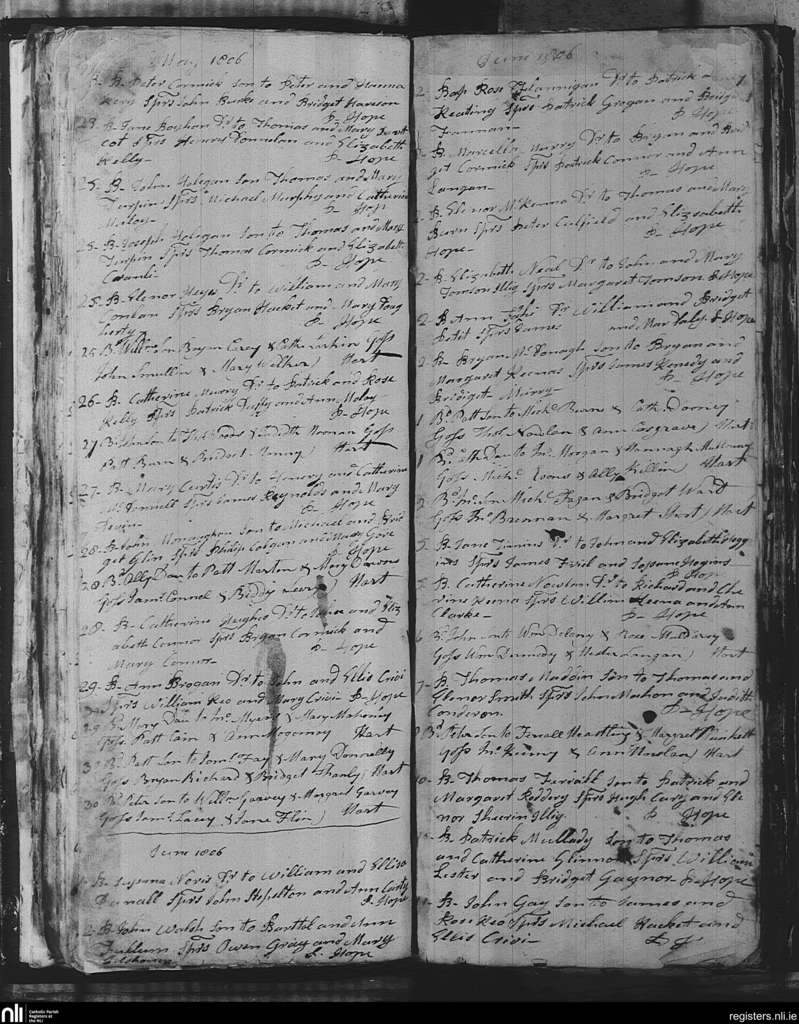 May 1806
B- Peter Cormick Son to Peter and Honna
Kery Sprs John Burke and Bridget Hanson
P- Hope
23. B- Jane Boyhan Dr to Thomas and Mary
cot Sprs Henery Donnelan and Elizabeth
Kelly- P- Hope
25- B- John Holegan Son Thomas and Mary
Turpin Sprs Michael Murphy and Catherine
Maloy- P- Hope
25- B- Joseph Holigan Son to Thomas and Mary
Turpin Sprs Thomas Cormick and Elizabeth
P- Hope
25- B- Elenor Heyes Dr to William and Mary
Conlan Sprs Bryan Hacket and Mary Doug
herty P- Hope
25 B. Willm Son Bryan Carey & Cath. Larkin Goss
John Smullin & Mary Welhen) Hart
26- B- Catherine Murry Dr to Patrick and Rose
Kelly Sprs Patrick Duffy and Ann Maloy-
P- Hope
27 B. John Son to & Judith Noonan Goss
Patt Burn & Bridget Hart
27- B- Mary Curtis Dr to Henery and Catherine
Sprs James Reynolds and Mary
P- Hope
28- B- John Monaghan Son to Michael and Brid
get Glin Sprs Philip Colgan and Mary Gore
P- Hope
28 Bd Ally Dau to Patt Martin & Mary Downs
Goss Jams Connel & Biddy Leary) Hart
28- B- Catherine Hughes Dr to and Eliz
abeth Connor Sprs Bryan Cormick and
Mary Connor- P- Hope
29- B- Ann Brogan Dr to John and Ellis Crivi
Sprs William Keo and Mary Crivin P- Hope
29 B. Mary Dau to Jno Myers & Mary Mahony
Goss Patt Cain & Ann Mogomery Hart
30 Bd Patt Son to Jams Fay & Mary Donnelly
Goss Bryan Richard & Bridget Shanly) Hart
30 Bd Peter Son to Willm Garvey & Margaret Garvey
Goss Jams Lacey & Jane Flin) Hart
June 1806
B- Susana Noris Dr to William and Elliza
Darnall Sprs John Shepelton and Ann Carty
P- Hope
2- B- John Walsh Son to Barthl and Ann
Sprs Owen Gray and Mary
P- Hope
June 1806
2- Bap Rose Flannigan Dr to Patrick
Keating Sprs Patrick Grogan and Bridget
P- Hope
B- Marcella Murry Dr to Bryan and Brid
get Cormick Sprs Patrick Connor and Ann
Langan- P- Hope
B- Elenor McKenna Dr to Thomas and Mary
Burn Sprs Peter Culfield and Elizsabeth
Hope- P- Hope
2- B- Elizabeth Neal Dr to John and Mary
Tomlon Sprs Margaret Tomson P- Hope
2- B- Ann Dr William and Bridget
Petit Sprs James and Mary Daly P- Hope
2- B- Bryan McDonagh Son to Bryan and
Margaret Keenas Sprs James Kenedy and
Bridigit Murry- P- Hope
Bd Patt Son to Michl Burn & Cath. Dorney
Goss Thos Nowlan & Ann Cosgrave) Hart
Dau to Jno Morgan & Hannagh
Goss Michl Coons & Ally Killin) Hart
Bd Jno Son Michl Fagan & Bridget Ward
Goss Jno Brennan & Margret Hart
5- B- Jane Dr to John and Elizabeth Hogg
ins Sprs James Frial and Susana Hogins
P- Hope
B. Catherine Nowlan Dr to Richard and Che
rine Keena Sprs William Keena and Ann
Clarke- P- Hope
6 Bd John Son to Wm Delany & Rose Muldarey
Goss Wm Dunnody & Hester Langan) Hart
7- B- Thomas Maddin Son to Thomas and
Elenor Smith Sprs John Mahon and Judith
Conderon. P- Hope
B. Peter Son to Ferrall & Margret Plunkett
Goss Jno Kieney & Ann Nowlan) Hart
10- B- Thomas Ferrall Son to Patrick and
Margaret Rodday Sprs Hugh Cary and Ele
nor Shuerin P- Hope
B- Patrick Mullady Son to Thomas
and Catherine Glinnon Sprs William
Lester and Bridget Gaynor P- Hope
B- John Gay Son to James and
Rose Keo Sprs Michael Hacket and
Ellis Crivi-
nli Catholic Parish
Registers at
the NLI
registers.nli.ie